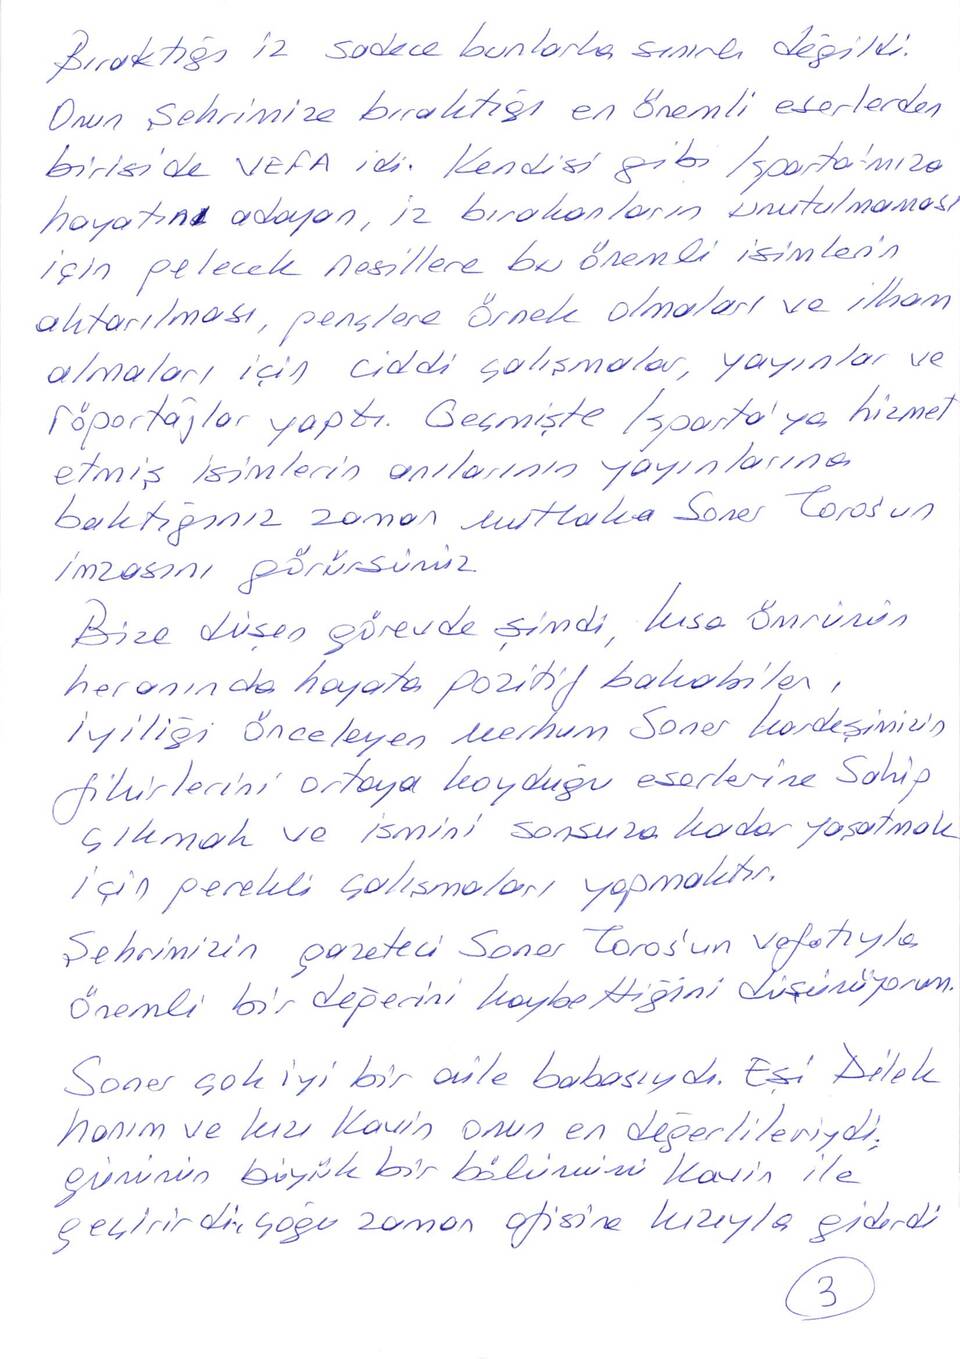 Bıraktığı iz sadece bunlarla sınırlı değildi.
Onun Şehrimize bıraktığı en önemli eserlerden
biriside VEFA idi. Kendisi gibi Isparta'mıza
hayatını adayan, iz bırakanların unutulmaması
için gelecek nesillere bu önemli isimlerin
aktarılması, gençlere örnek olmaları ve ilham
almaları için ciddi çalışmalar, yayınlar ve
röportajlar yaptı. Geçmişte Isparta'ya hizmet
etmiş isimlerin anılarının yayınlarına
baktığınız zaman mutlaka Soner Toros'un
imzasını görürsünüz
Bize düşen görevde şimdi, kısa ömrünün
heranında hayata pozitif bakabilen,
iyiliği önceleyen Merhum Soner kardeşimizin
fikirlerini ortaya koyduğu eserlerine Sahip
çıkmak ve ismini sonsuza kadar yaşatmak
için gerekli çalışmaları yapmaktır.
Şehrimizin gazeteci Soner Toros'un vefatıyla
önemli bir değerini kaybettiğini düşünüyorum.
Soner çok iyi bir aile babasıydı. Eşi Dilek
hanım ve kızı Kavin onun en değerlileriydi,
gününün büyük bir bölümünü Kavin ile
geçirirdi, çoğu zaman ofisine kızıyla giderdi
3